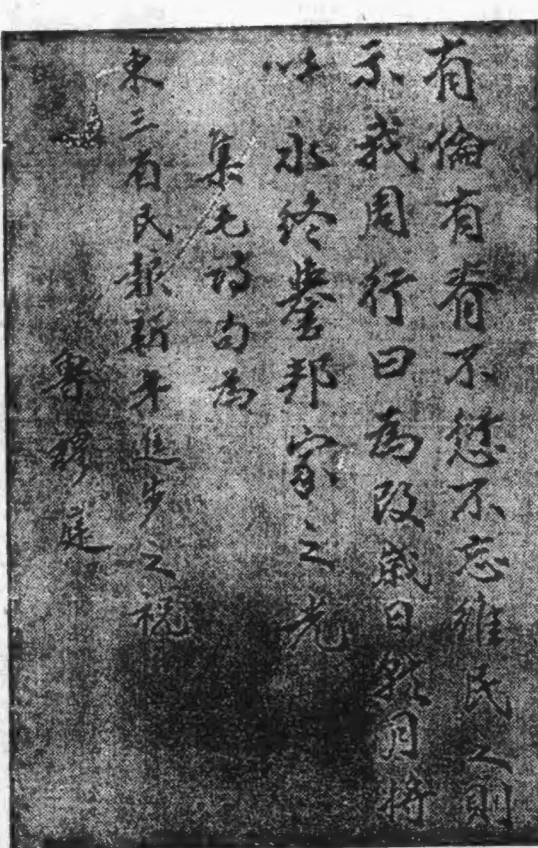 有倫有脊不愆不忘維民之則
示我周行曰為改歲日就月將
以永終譽邦家之光
集毛詩句為
東三省民報新年進步之祝
魯穆庭